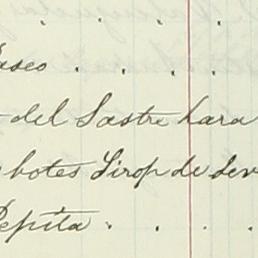 aseo . . . .
- del Sastre para
botes Sirop de Sev
Pepita . . . .